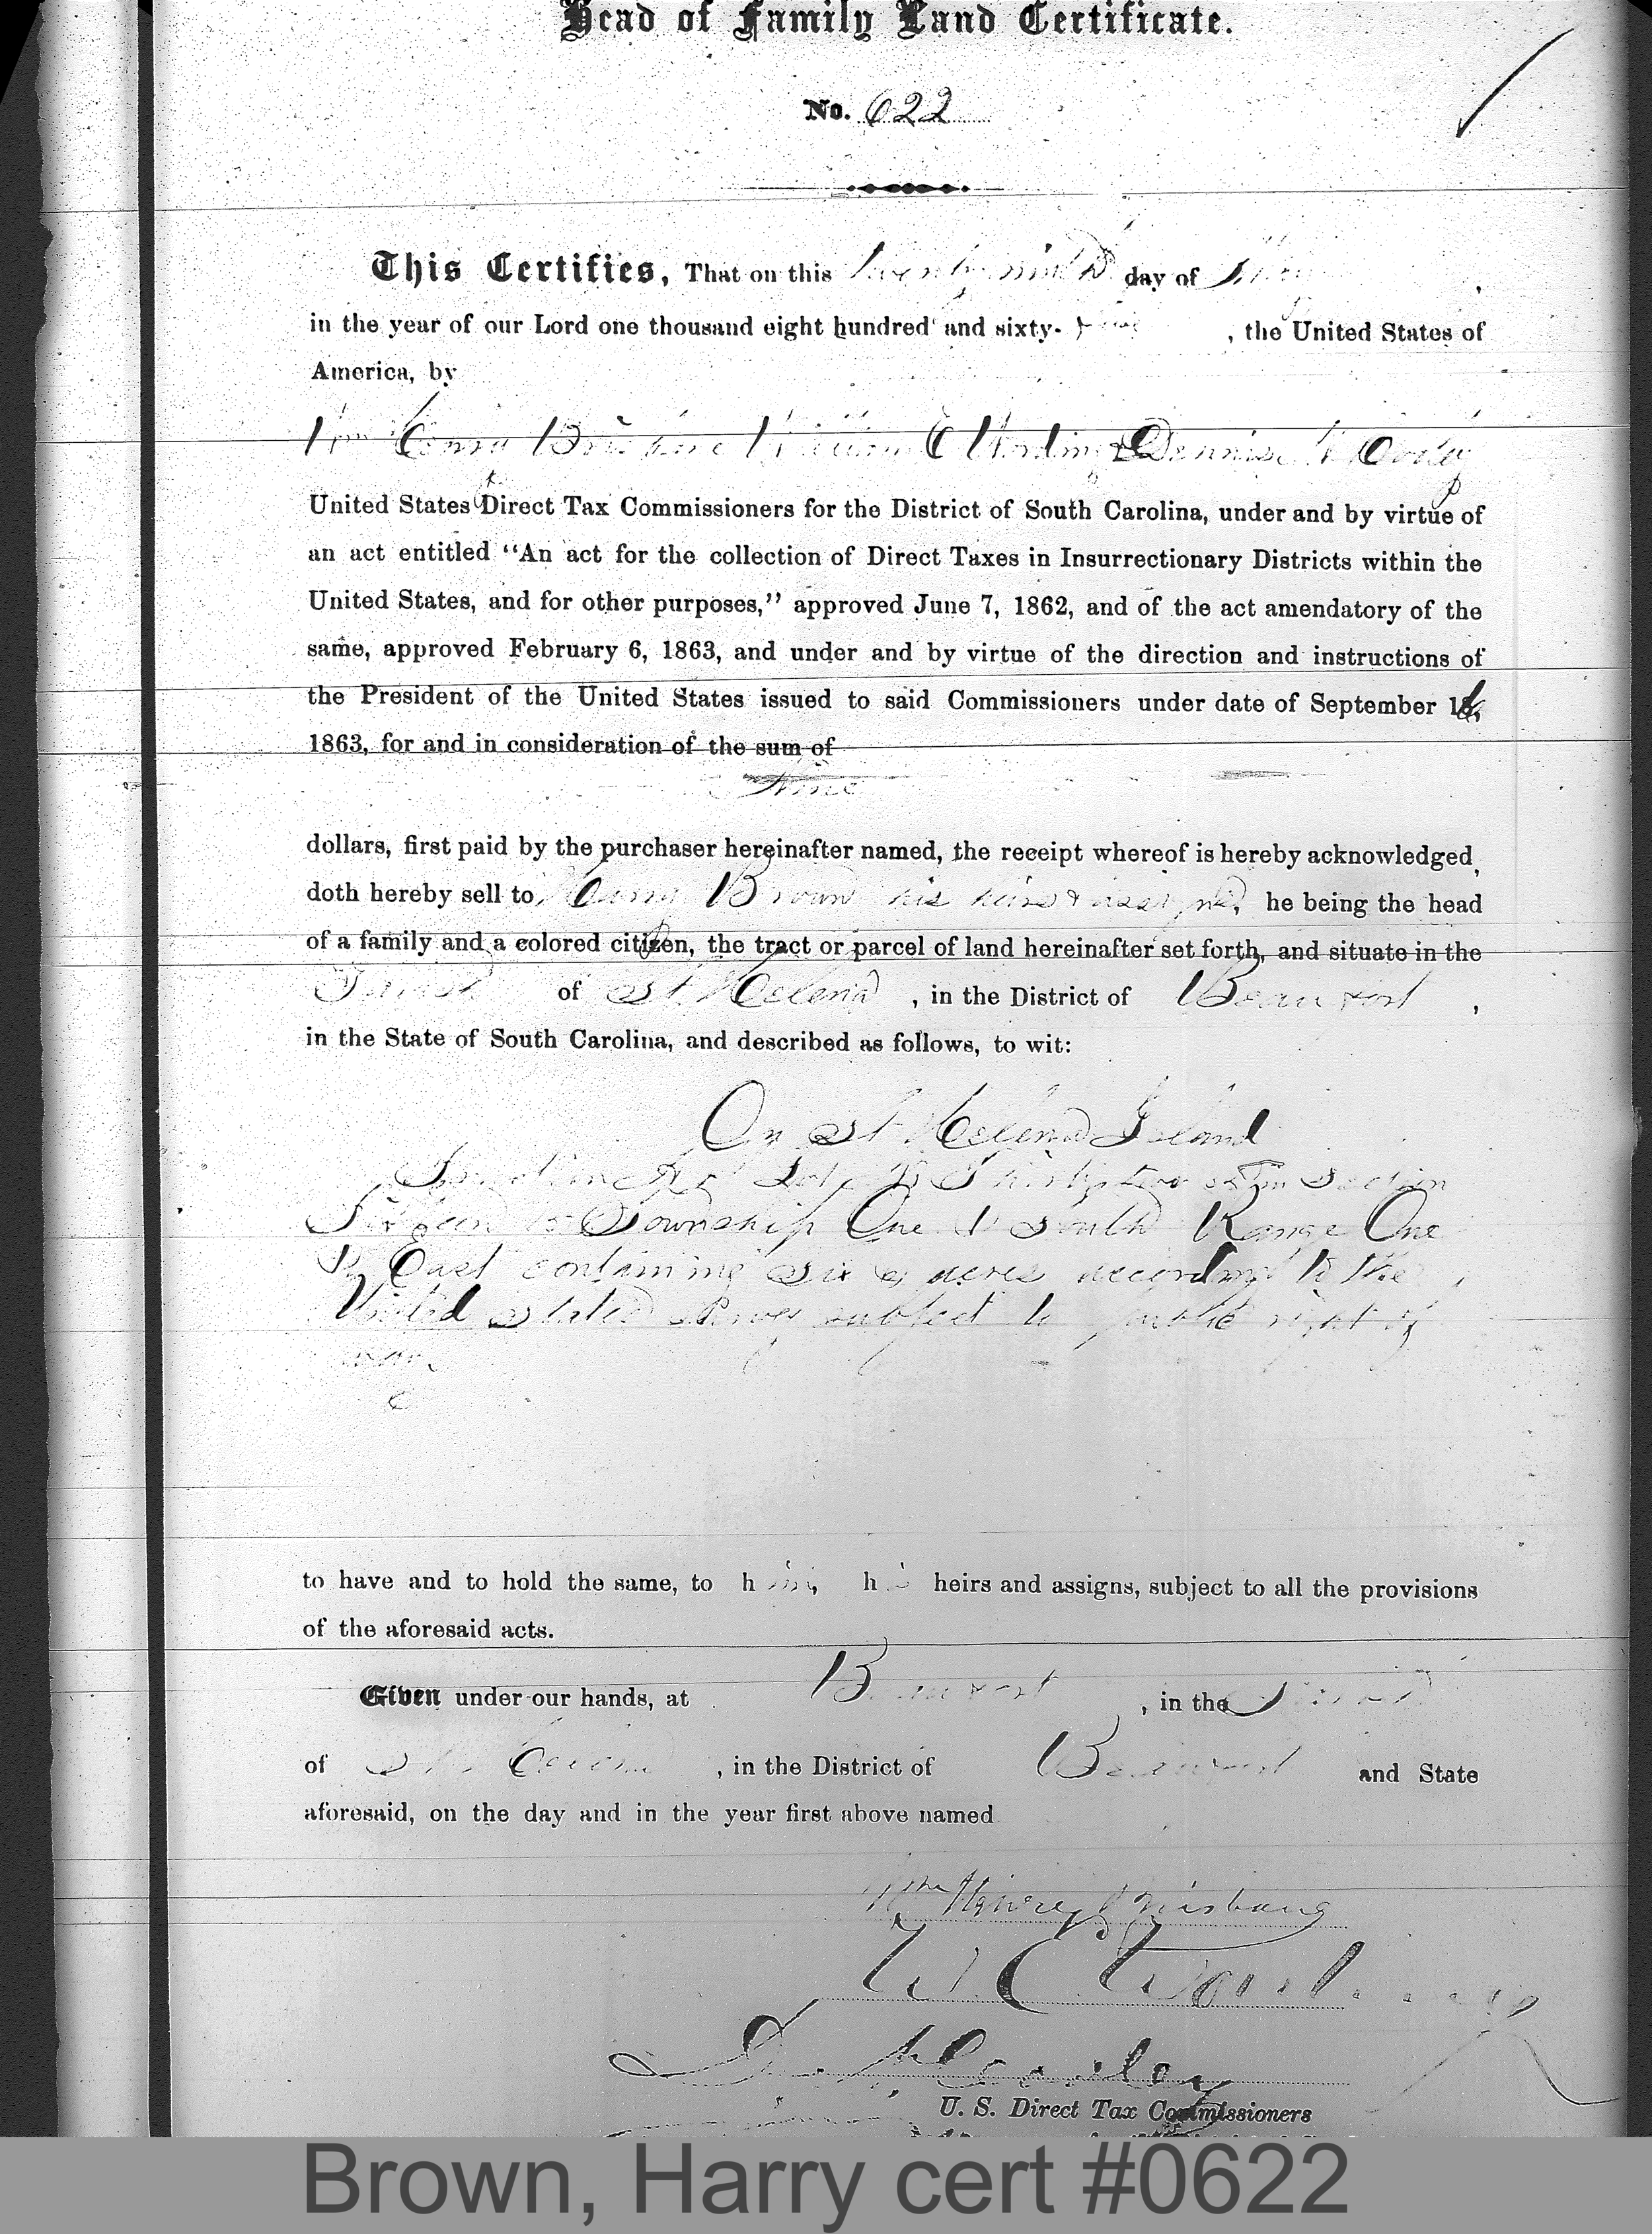 Head of Family Land Certificate.
No. 622
This Certifies, That on this twenty ninth day of
in the year of our Lord one thousand eight hundred and sixty- five , the United States of
America, by
Wm Henry Brisbane William E Wording & Dennis N Cooley
United States Direct Tax Commissioners for the District of South Carolina, under and by virtue of
an act entitled "An act for the collection of Direct Taxes in Insurrectionary Districts within the
United States, and for other purposes," approved June 7, 1862, and of the act amendatory of the
same, approved February 6, 1863, and under and by virtue of the direction and instructions of
the President of the United States issued to said Commissioners under date of September 16,
1863, for and in consideration of the sum of
Nine
dollars, first paid by the purchaser hereinafter named, the receipt whereof is hereby acknowledged,
doth hereby sell to Harry Brown his heirs & assigns, he being the head
of a family and a colored citizen, the tract or parcel of land hereinafter set forth, and situate in the
Parish of St Helena , in the District of Beaufort ,
in the State of South Carolina, and described as follows, to wit:
On St Helena Island
Lot Thirty two 32 in Section
Sixteen 16 Township One 1 South Range One
1 East containing six 6 acres according to the
United States Survey subject to public right of
way.
to have and to hold the same, to him, his heirs and assigns, subject to all the provisions
of the aforesaid acts.
Given under our hands, at Beaufort , in the Parish
of St Helena , in the District of Beaufort and State
aforesaid, on the day and in the year first above named
Wm Henry Brisbane
W. E. Wording
Den N. Cooley
U. S. Direct Tax Commissioners
Brown, Harry cert #0622